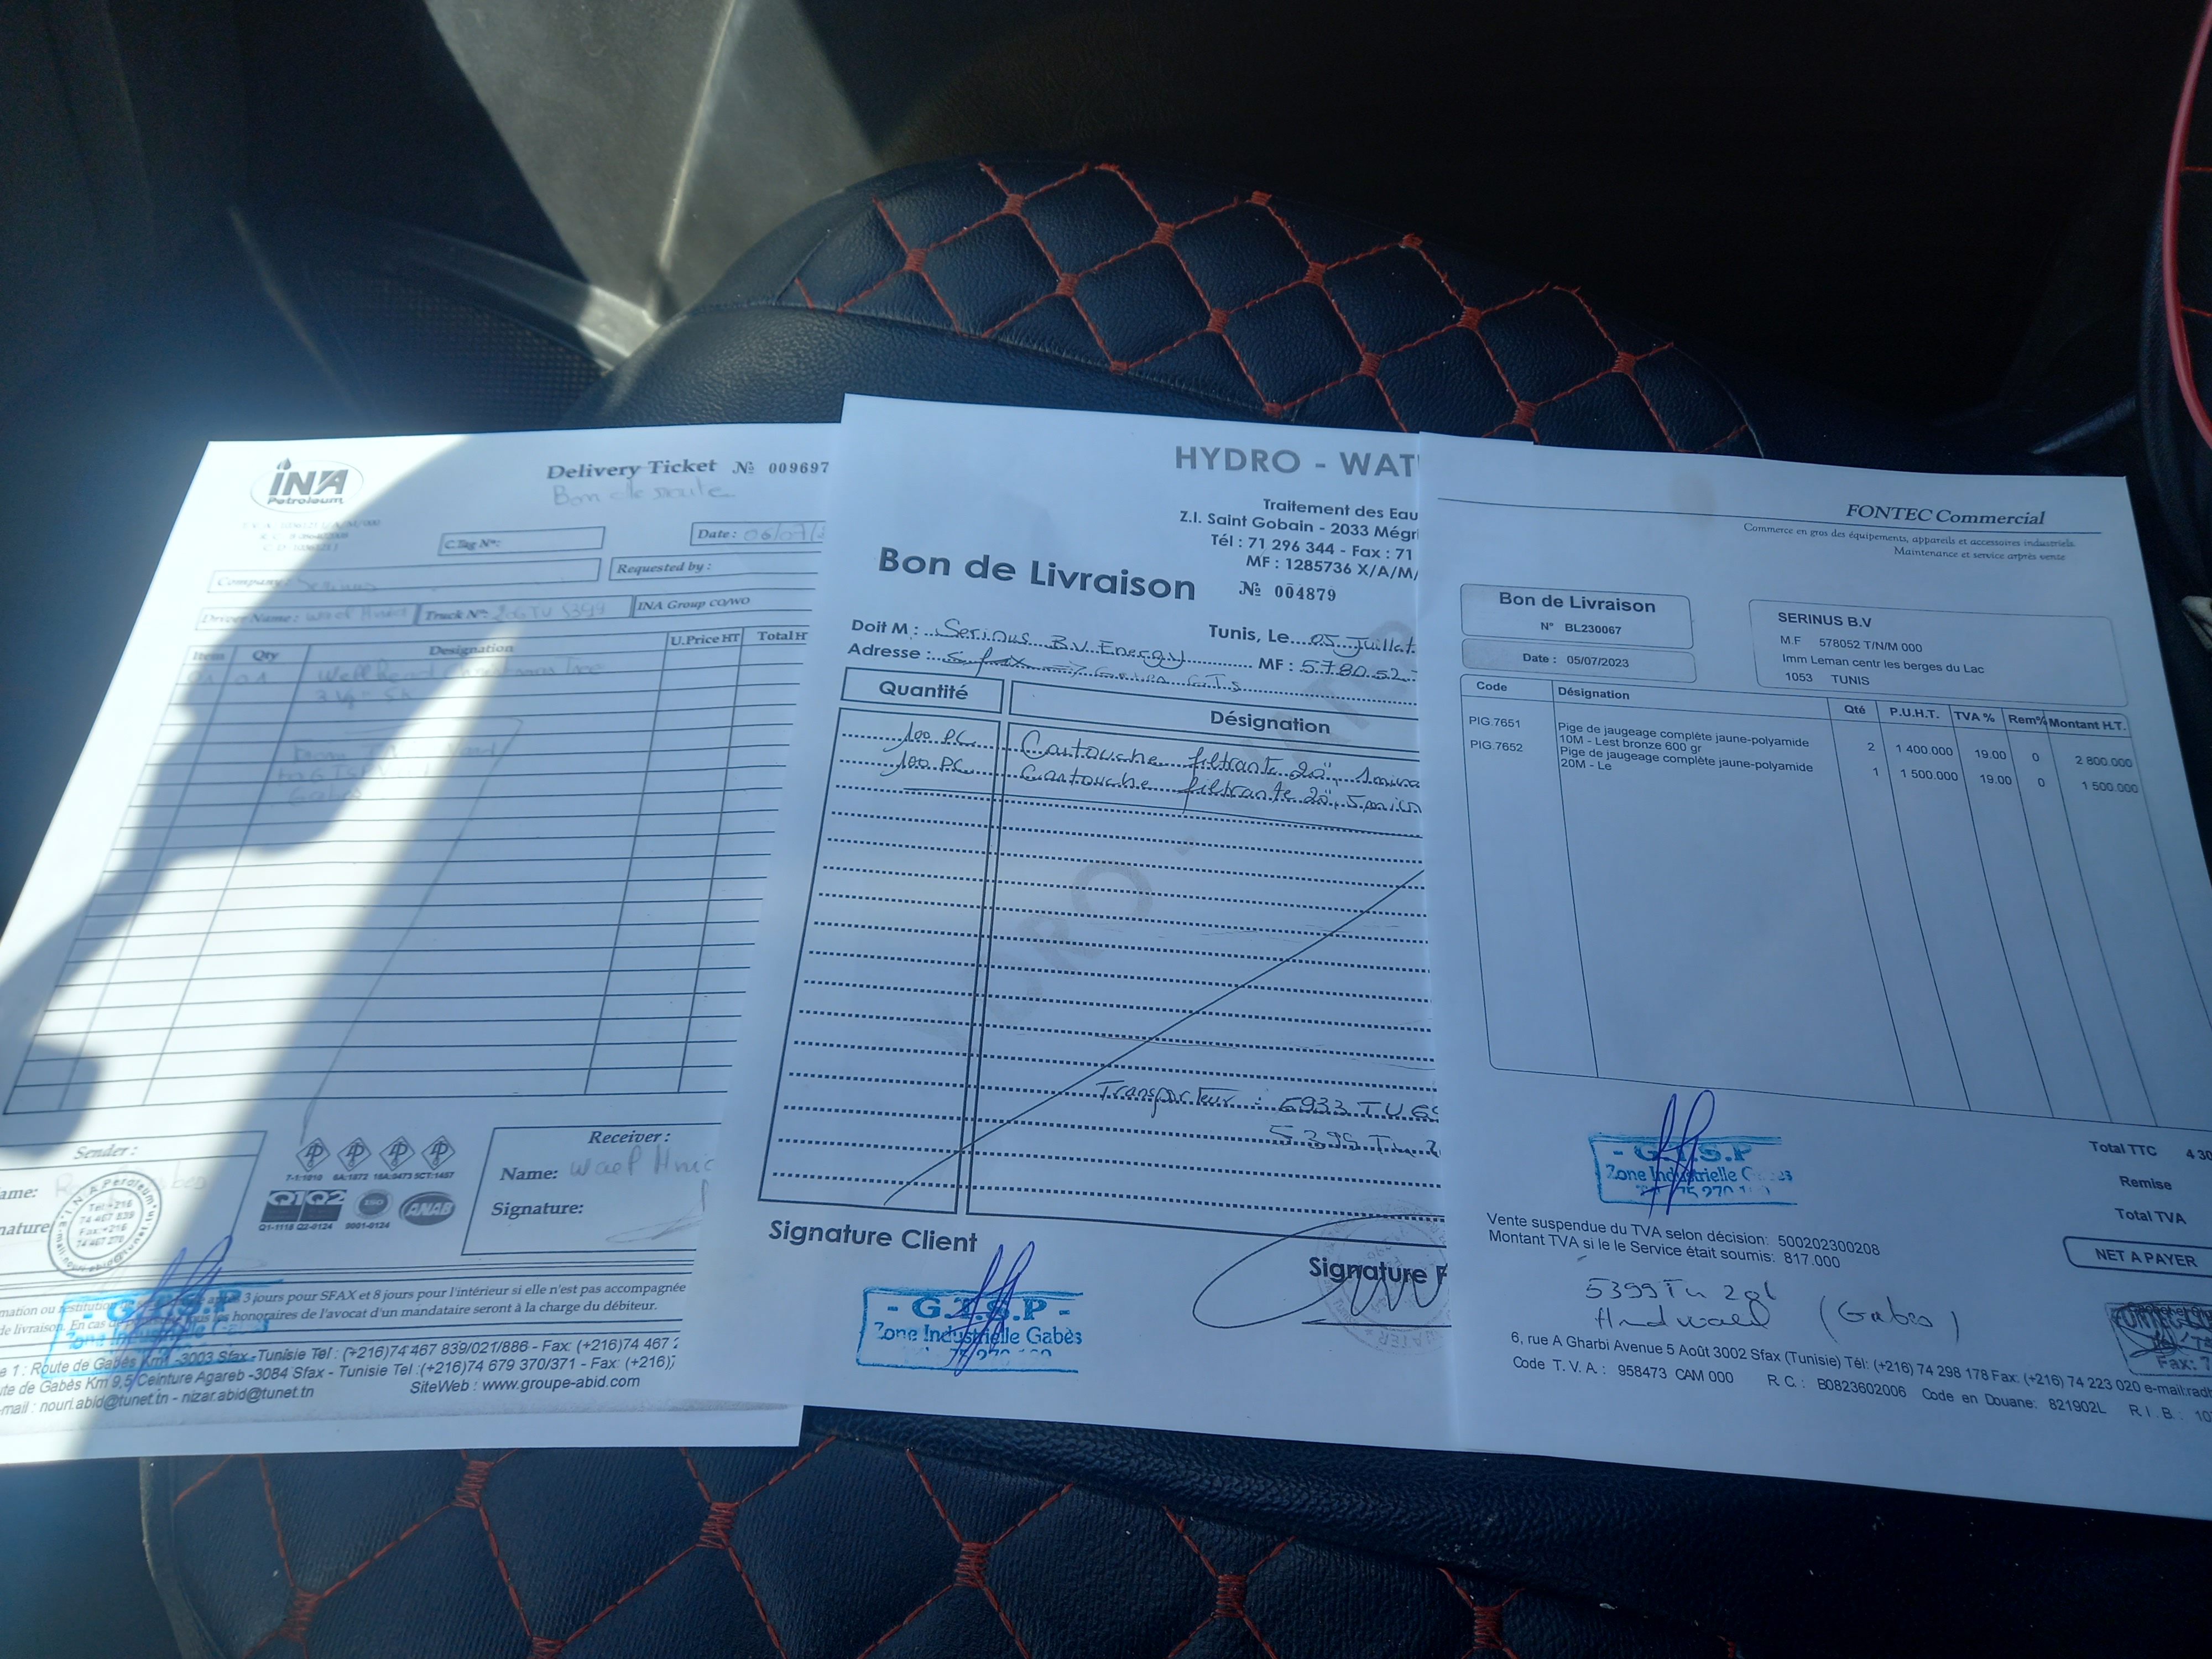 INA
Petroleum
Delivery Ticket № 009697
Bon de route
C.Tag N°:
Date : 06/07/
Company: Serinus
Requested by :
Driver Name : Waef Hnic
Truck N°: 206 TU 5399
INA Group CO/WO
Item
Qty
Designation
U.Price HT
Total H
01
01
Well Head
3 1/2
Gabes
Sender :
ame:
nature
Tel:+216
74 467 839
Fax:+216
74 467 270
7-1:1010 6A:1872 16A:0473 5CT:1457
Q1Q2
ISO
ANAB
Q1-1118 Q2-0124 9001-0124
Receiver :
Name: Waef Hnic
Signature:
après 3 jours pour SFAX et 8 jours pour l'intérieur si elle n'est pas accompagnée
de livraison. En cas les honoraires de l'avocat d'un mandataire seront à la charge du débiteur.
- G.T.S.P
Zone Industrielle Gabès
e 1 : Route de Gabès Km1 -3003 Sfax -Tunisie Tél : (+216)74 467 839/021/886 - Fax: (+216)74 467
te de Gabès Km 9,5 Ceinture Agareb -3084 Sfax - Tunisie Tel :(+216)74 679 370/371 - Fax: (+216)
mail : nouri.abid@tunet.tn - nizar.abid@tunet.tn
SiteWeb : www.groupe-abid.com
HYDRO - WAT
Traitement des Eau
Z.I. Saint Gobain - 2033 Mégr
Tél : 71 296 344 - Fax : 71
MF : 1285736 X/A/M/
Bon de Livraison
№ 004879
Doit M : Serinus B.V. Energy
Tunis, Le 05 Juillet
Adresse : Sfax => Gabes GTS
MF : 578052
Quantité
Désignation
100 PC Cartouche filtrante 20", 1 micro
100 PC Cartouche filtrante 20", 5 micro
Transporteur : 6933 TU
5399 Tu 2
Signature Client
Signature F
- G.T.S.P -
Zone Industrielle Gabès
FONTEC Commercial
Commerce en gros des équipements, appareils et accessoires industriels.
Maintenance et service arprès vente
Bon de Livraison
N° BL230067
Date : 05/07/2023
SERINUS B.V
M.F 578052 T/N/M 000
Imm Leman centr les berges du Lac
1053 TUNIS
Code Désignation Qté P.U.H.T. TVA % Rem% Montant H.T.
PIG.7651 Pige de jaugeage complète jaune-polyamide
10M - Lest bronze 600 gr 2 1 400.000 19.00 0 2 800.000
PIG.7652 Pige de jaugeage complète jaune-polyamide
20M - Le 1 1 500.000 19.00 0 1 500.000
- G.T.S.P
Zone Industrielle
Total TTC 4 30
Remise
Total TVA
NET A PAYER
Vente suspendue du TVA selon décision: 500202300208
Montant TVA si le le Service était soumis: 817.000
5399 Tu 206
(Gabes)
Fax: 7
6, rue A Gharbi Avenue 5 Août 3002 Sfax (Tunisie) Tél: (+216) 74 298 178 Fax: (+216) 74 223 020 e-mail:rad
Code T. V. A. : 958473 CAM 000 R.C. : B0823602006 Code en Douane: 821902L R.I.B. : 10